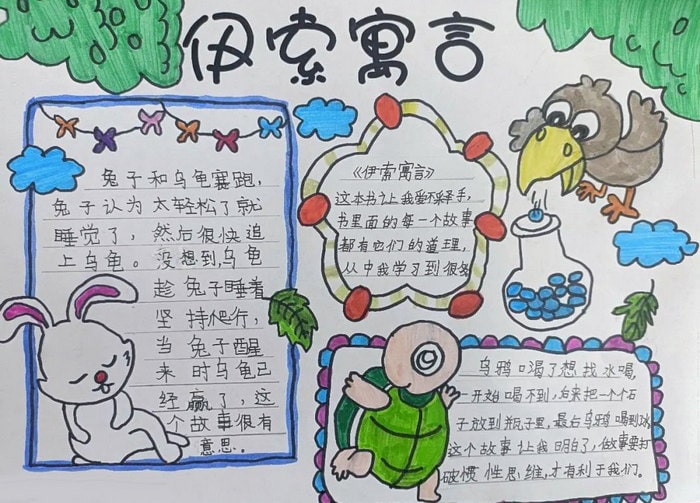 伊索寓言
兔子和乌龟赛跑,
兔子认为太轻松了就
睡觉了,然后很快追
上乌龟。没想到,乌龟
趁兔子睡着
坚持爬行,
当兔子醒
来时乌龟已
经赢了,这
个故事很有
意思。
《伊索寓言》
这本书让我爱不释手,
书里面的每一个故事
都有它们的道理,
从中我学习到很多
乌鸦口渴了想找水喝,
一开始喝不到,后来把一个个石
子放到瓶子里,最后乌鸦喝到水
这个故事让我明白了,做事要打
破惯性思维,才有利于我们。